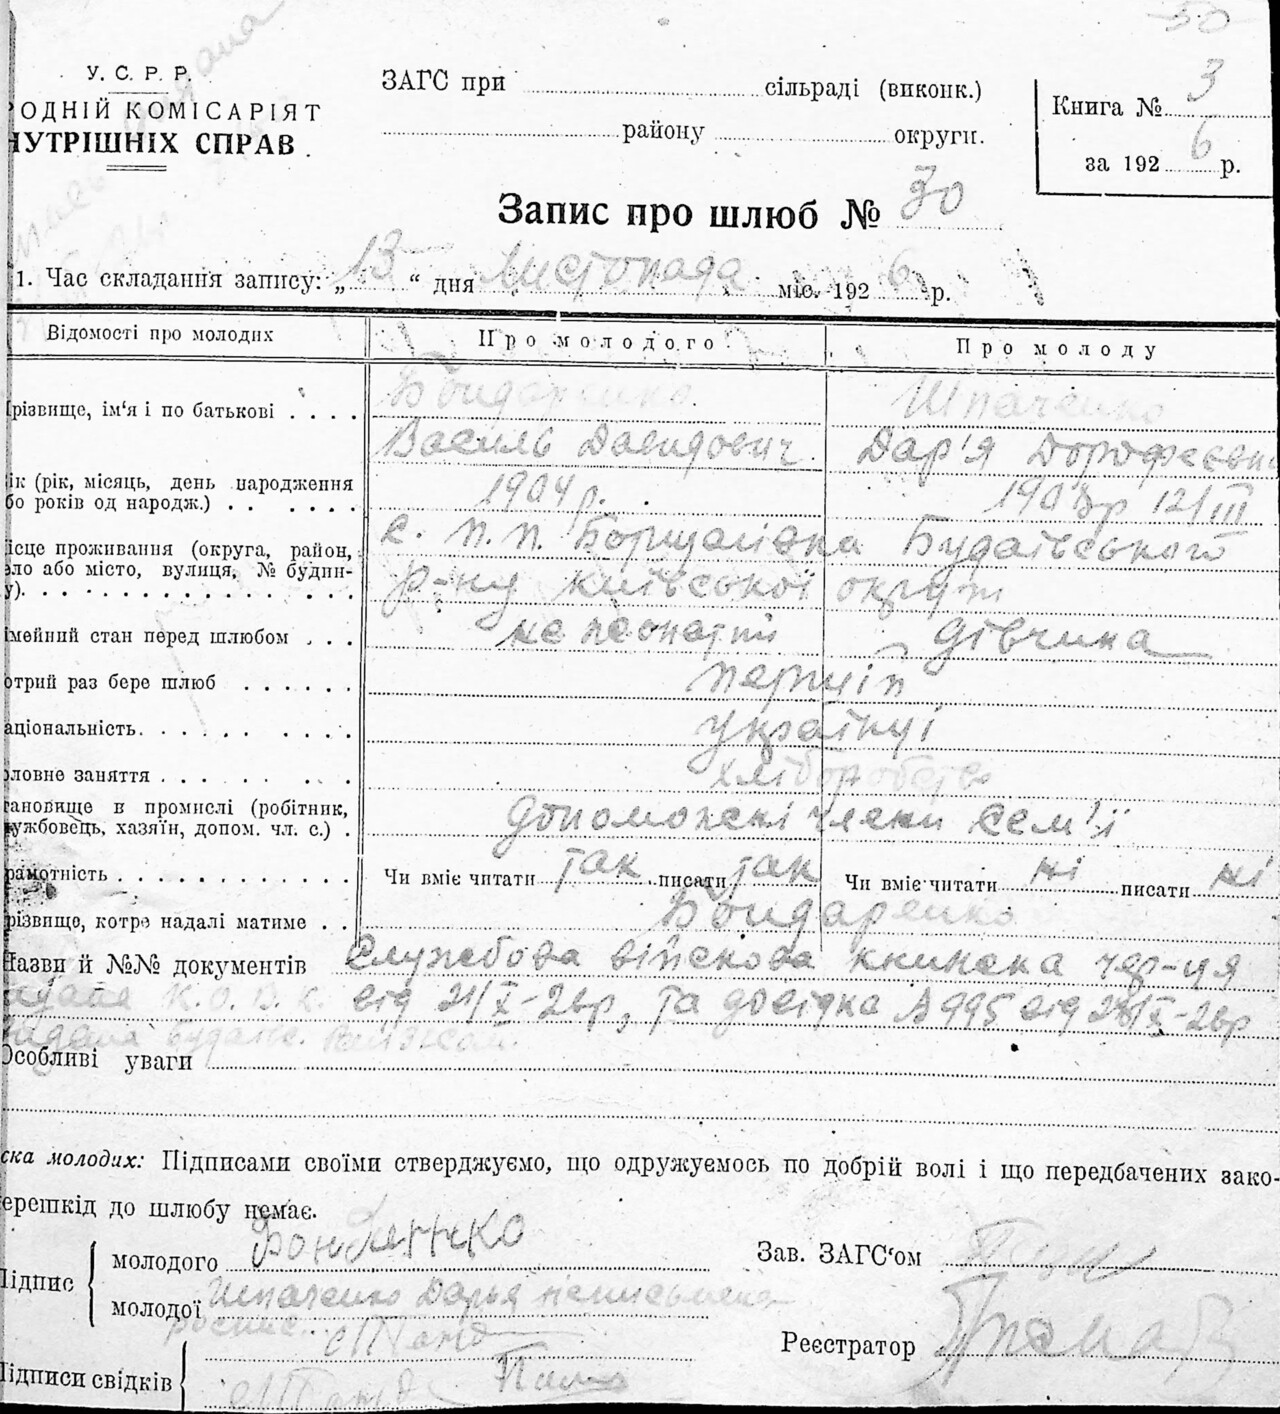 50
У. С. Р. Р.
РОДНІЙ КОМІСАРІЯТ
НУТРІШНІХ СПРАВ.
ЗАГС при сільраді (виконк.)
району округи.
Книга № 3
за 1926 р.
Запис про шлюб № 30
1. Час складання запису: „13“ дня Листопада міс. 1926 р.
Відомості про молодих Про молодого Про молоду
різвище, ім‘я і по батькові Бондаренко Шпаченко
Василь Давидович Дар'я Дорофеєвн
ік (рік, місяць, день народження
бо років од народж.) 1904 р. 1903р 12/III
ісце проживання (округа, район,
ело або місто, вулиця, № будин-
у). с. П. П. Борщагівка Будаївського
р-ну київської округи
імейний стан перед шлюбом не жонатий дівчина
отрий раз бере шлюб перший
аціональність українці
оловне заняття хліборобство
тановище в промислі (робітник,
ужбовець, хазяїн, допом. чл. с.) допоможні члени сем'ї
рамотність Чи вміє читати так писати так Чи вміє читати ні писати ні
різвище, котре надалі матиме Бондаренко
Назви й №№ документів Службова війскова книжка чер-ця
видана К.О.В.К. від 21/X-26р, та довідка № 995 від 28/X-26р
видана Будаїв.
Особливі уваги
ска молодих: Підписами своїми стверджуємо, що одружуємось по добрій волі і що передбачених зако-
ерешкід до шлюбу немає.
Підпис
молодого Бондаренко
молодої Шпаченко Дарья неписьмена
Зав. ЗАГС‘ом
Реєстратор
Підписи свідків